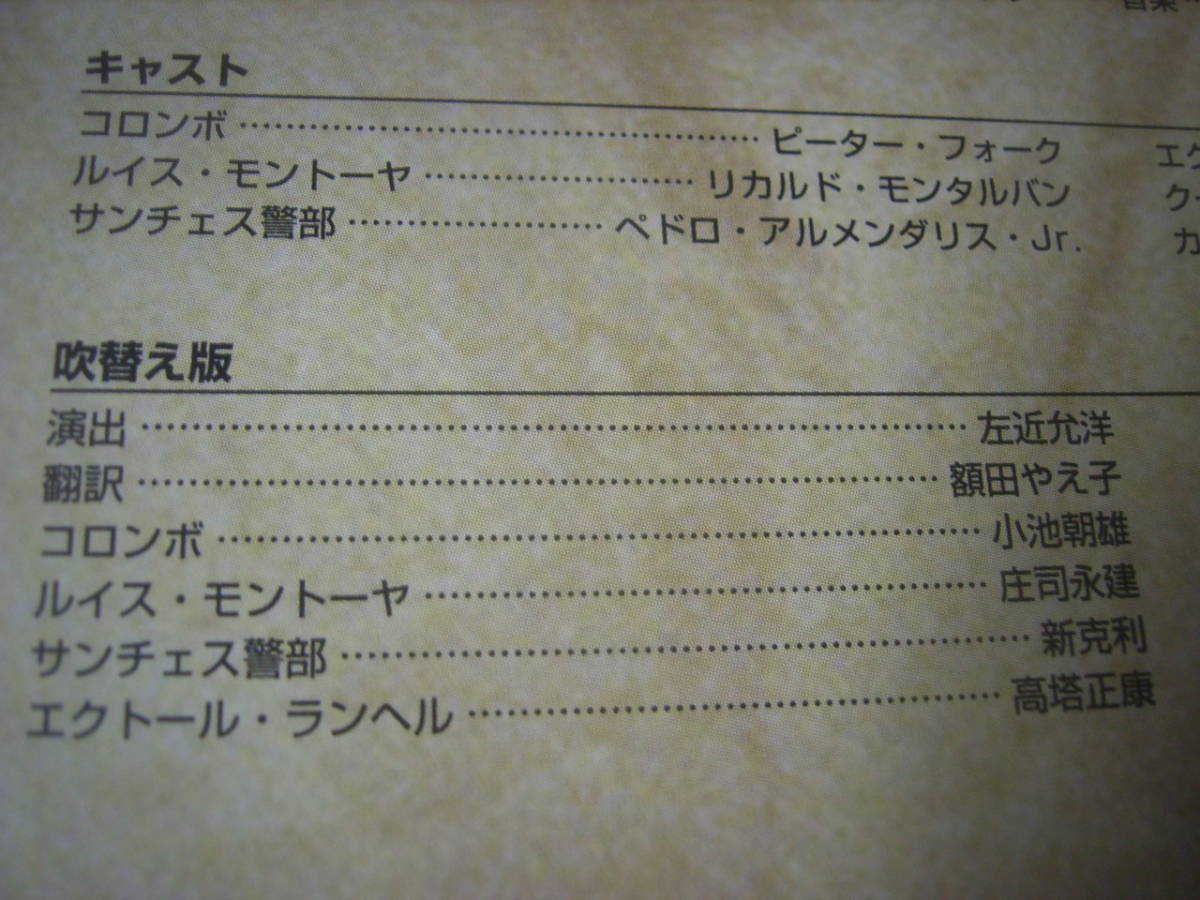 キャスト
コロンボ……………………………………ピーター・フォーク
ルイス・モントーヤ……………………リカルド・モンタルバン
サンチェス警部……………………ペドロ・アルメンダリス・Jr.
吹替え版
演出……………………………………………………左近允洋
翻訳……………………………………………………額田やえ子
コロンボ………………………………………………小池朝雄
ルイス・モントーヤ…………………………………庄司永建
サンチェス警部………………………………………新克利
エクトール・ランヘル………………………………高塔正康